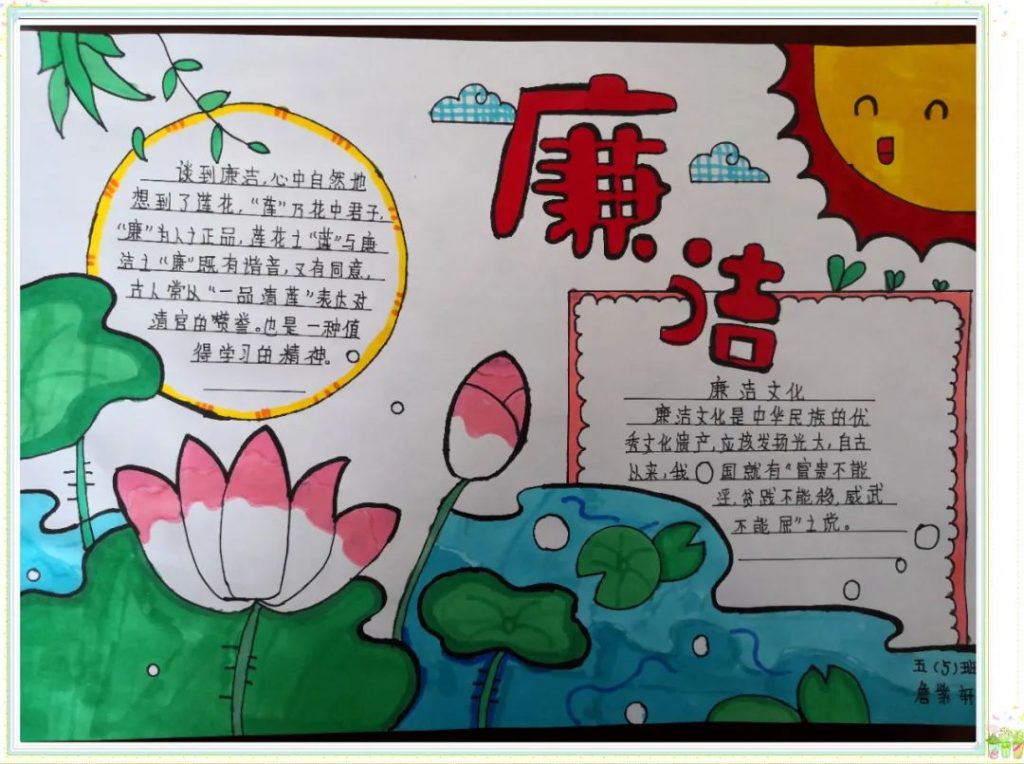 廉洁
谈到廉洁,心中自然地
想到了莲花,“莲”乃花中君子,
“廉”为人之正品,莲花之“莲”与廉
洁之“廉”既有谐音,又有同意,
古人常从“一品清莲”表达对
清官的赞誉。也是一种值
得学习的精神。
廉洁文化
廉洁文化是中华民族的优
秀文化遗产,应该发扬光大,自古
以来,我国就有“富贵不能
淫,贫贱不能移,威武
不能屈”之说。
五(5)班